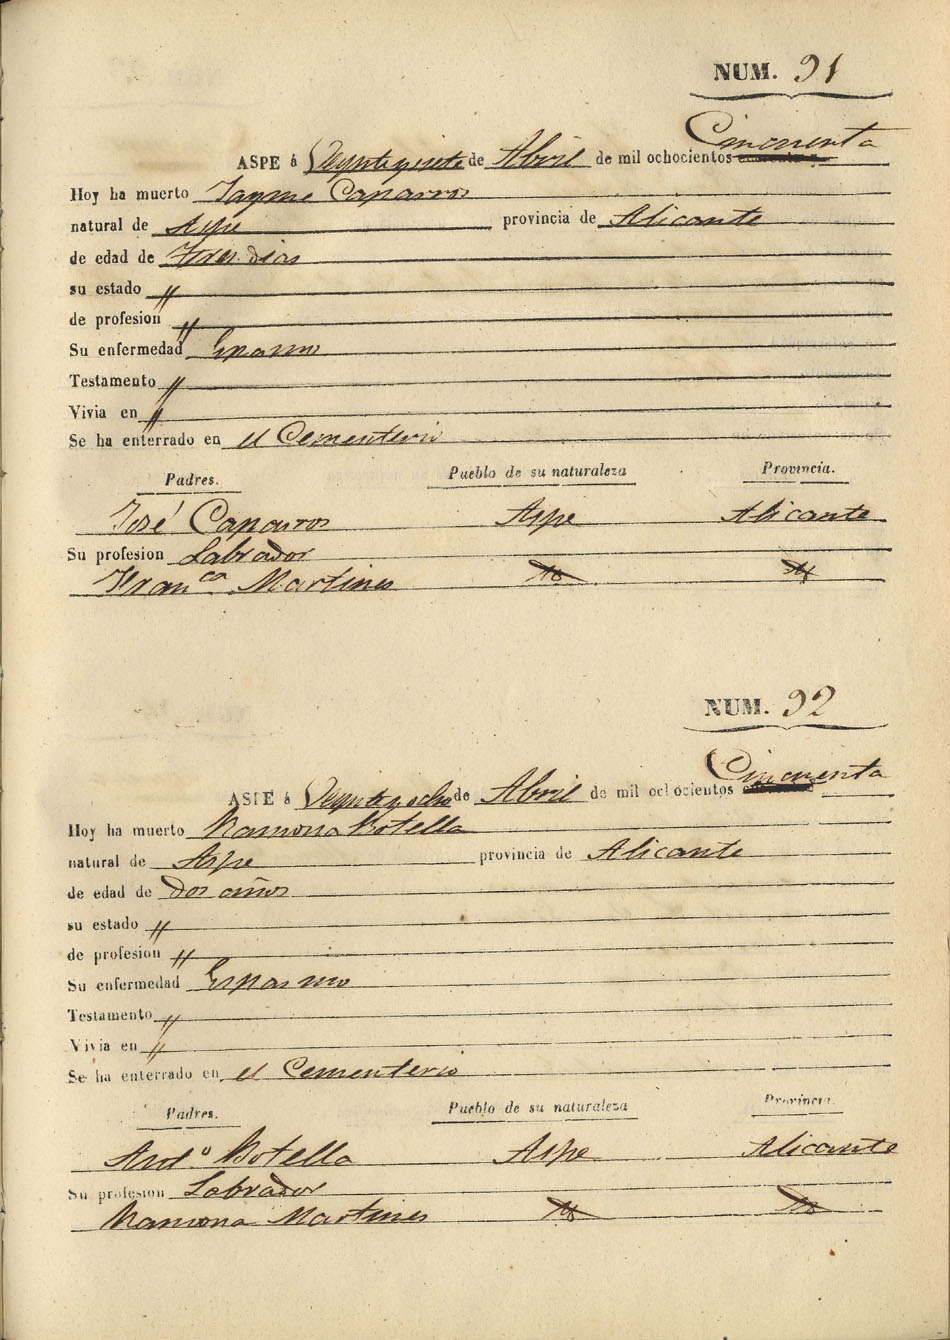 NUM. 91
ASPE á Veynte y siete de Abril de mil ochocientos Cincuenta
Hoy ha muerto Jayme Caparros
natural de Aspe provincia de Alicante
de edad de Tres dias
su estado "
de profesion "
Su enfermedad Espasmo
Testamento "
Vivia en "
Se ha enterrado en el Cementerio
Padres. Pueblo de su naturaleza Provincia.
José Caparros Aspe Alicante
Su profesion Labrador
Fran.ca Martines
NUM. 92
ASPE á Veynte y ocho de Abril de mil ochocientos Cincuenta
Hoy ha muerto Ramona Botella
natural de Aspe provincia de Alicante
de edad de dos años
su estado "
de profesion "
Su enfermedad Espasmo
Testamento "
Vivia en "
Se ha enterrado en el Cementerio
Padres. Pueblo de su naturaleza Provincia.
Ant.o Botella Aspe Alicante
Su profesion Labrador
Ramona Martines